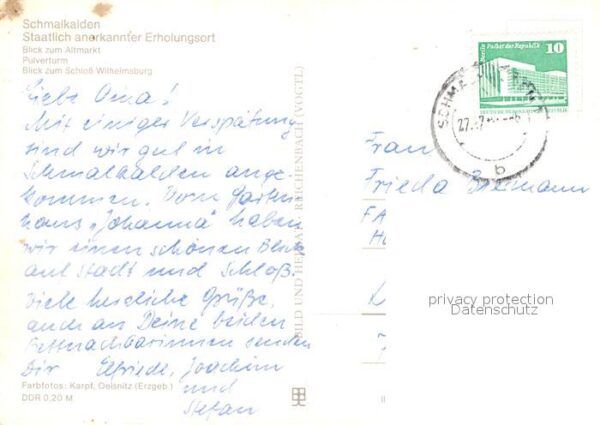 Schmalkalden
Staatlich anerkannter Erholungsort
Blick zum Altmarkt
Pulverturm
Blick zum Schloß Wilhelmsburg
Liebe Oma!
Mit einiger Verspätung
sind wir gut in
Schmalkalden ange-
kommen. Vom Garten
haus „Johanna" haben
wir einen schönen Blick
auf Stadt und Schloß.
Viele herzliche Grüße,
auch an Deine beiden
Bettnachbarinnen senden
Dir Elfriede, Joachim
und
Stefan
Farbfotos: Karpf, Oelsnitz (Erzgeb.)
DDR 0,20 M
BILD UND HEIMAT REICHENBACH (VOGTL)
Berlin Palast der Republik
10
SCHMALKALDEN
27.
b
Frau
Frieda
privacy protection
Datenschutz